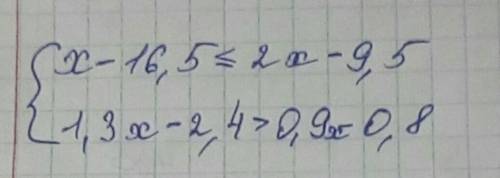 { x - 16,5 ≤ 2x - 9,5
1,3x - 2,4 > 0,9x - 0,8